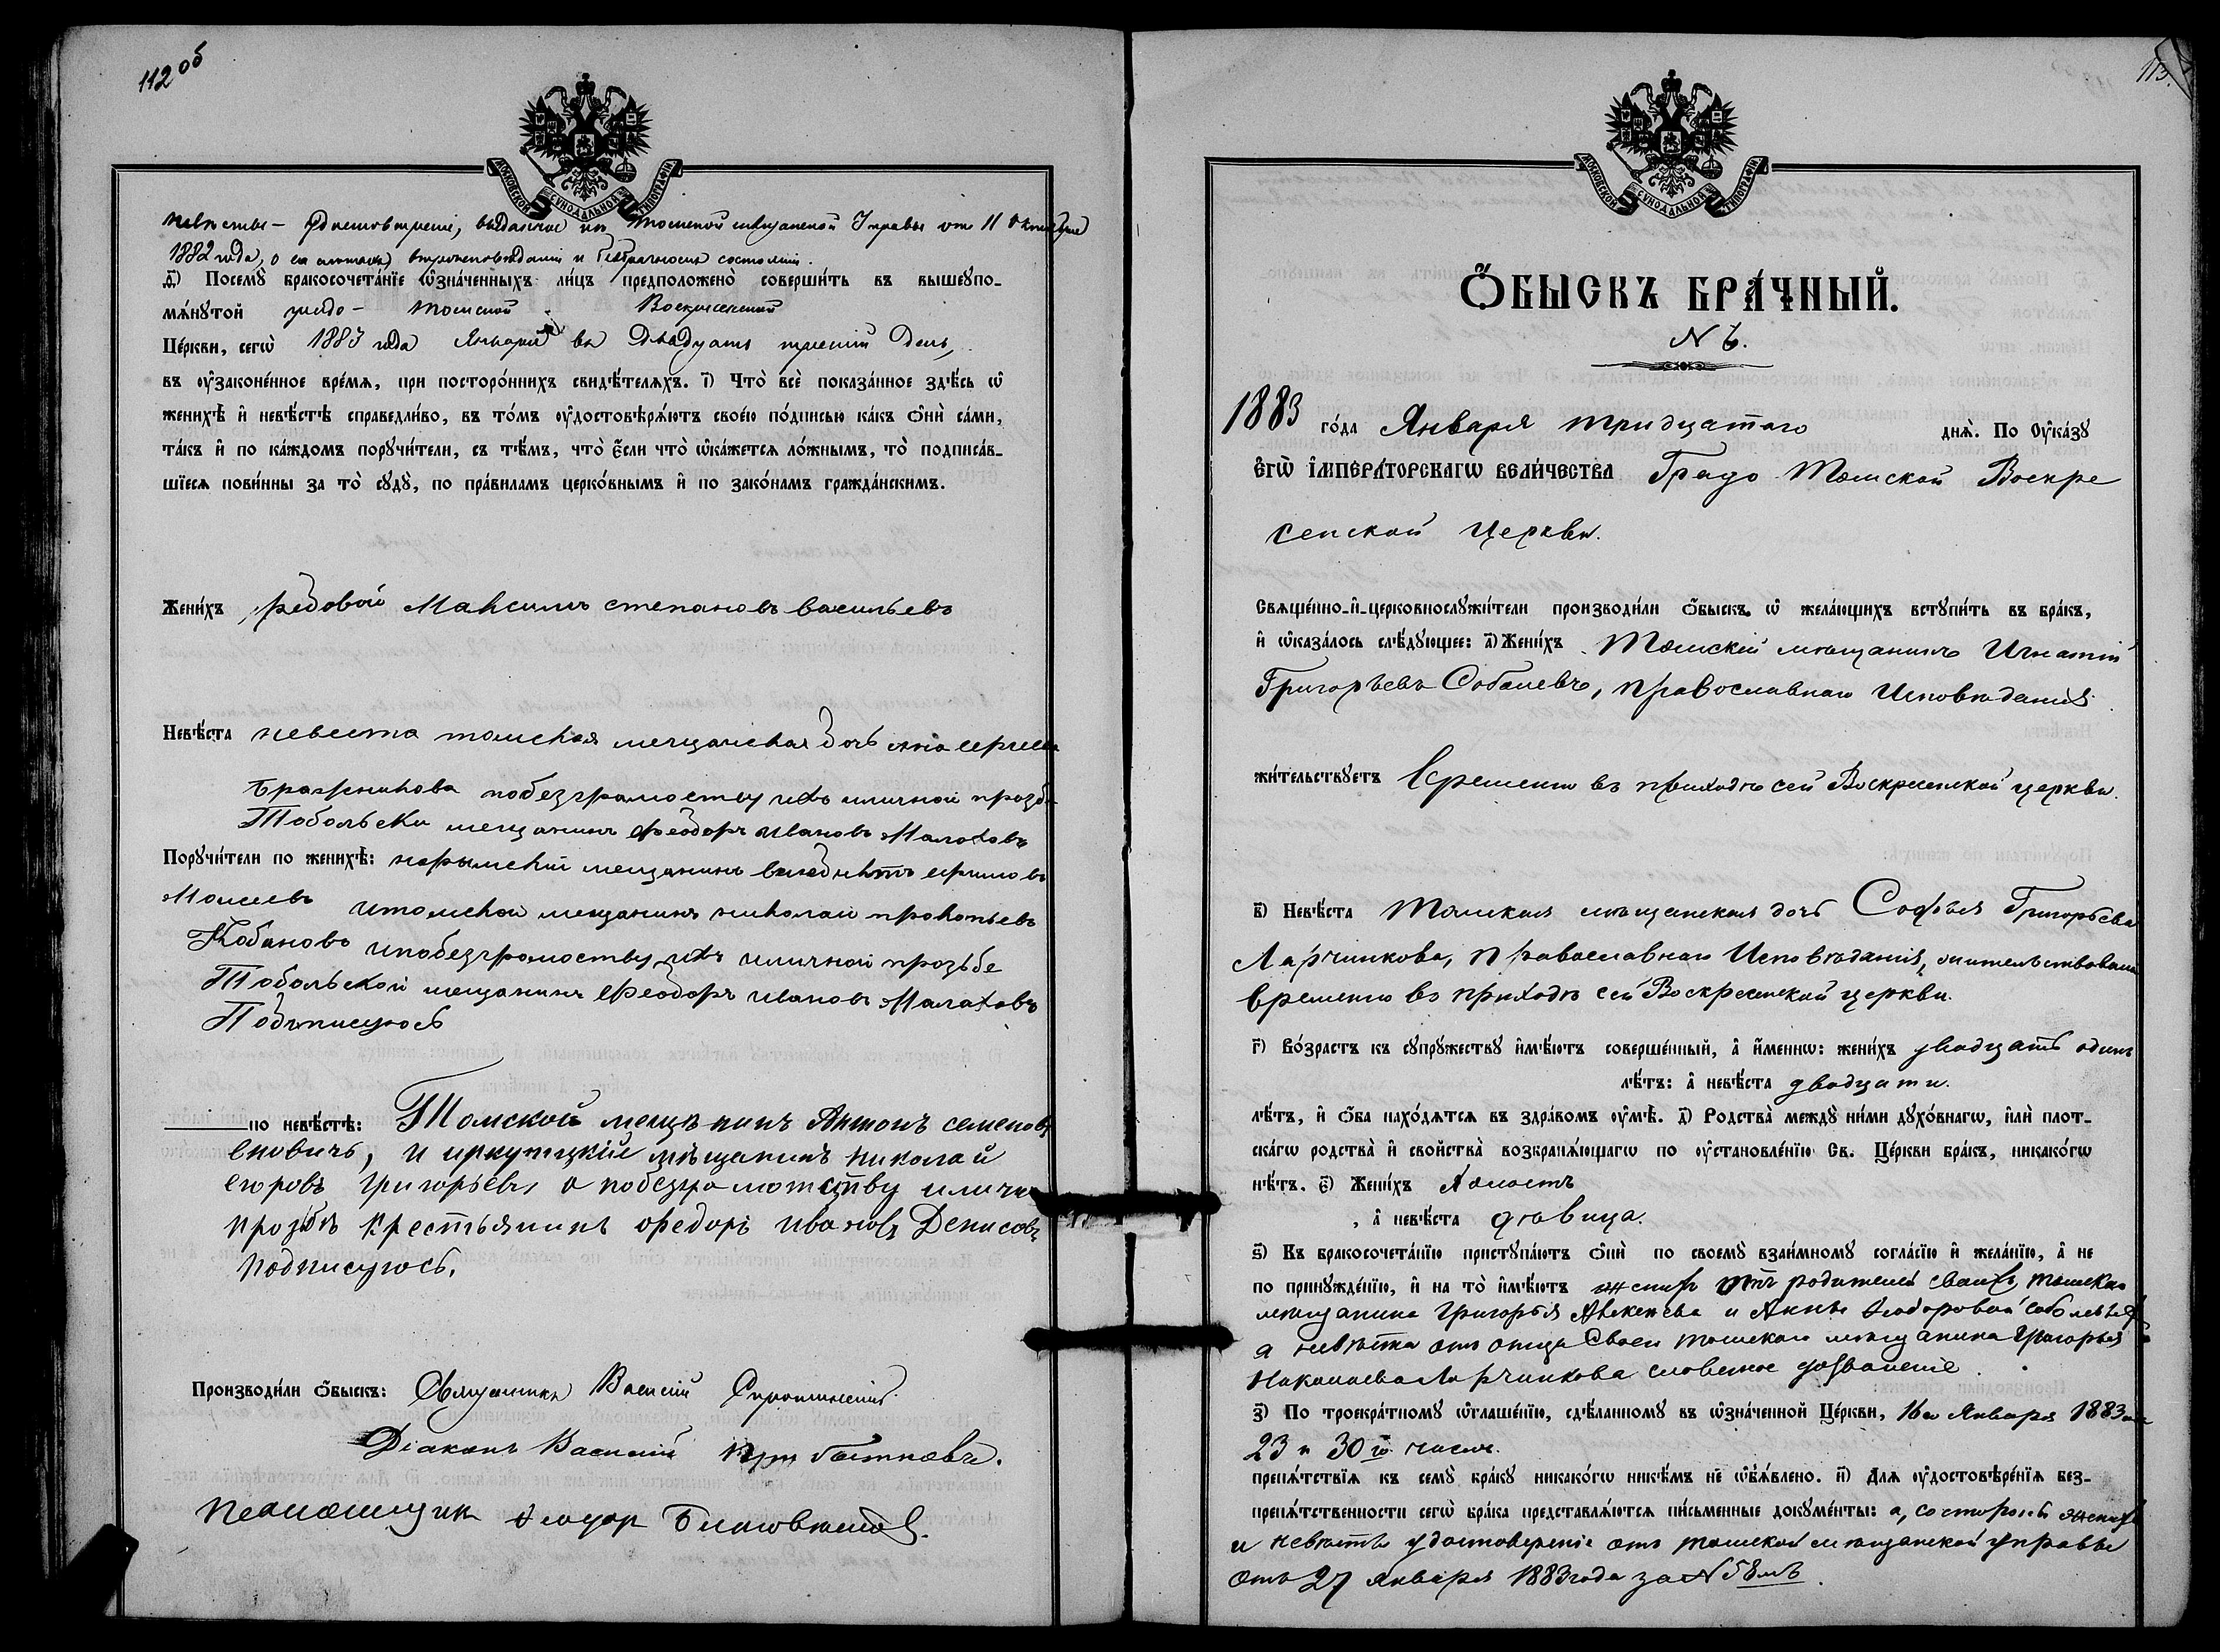 112 об
МОСКОВСКОЙ СѴНОДАЛЬНОЙ ТИПОГРАФІИ
невѣсты – удостовѣреніе, выданное изъ Томской мѣщанской Управы отъ 11 Октября
1882 года, о ея лѣтахъ, вѣроисповѣданіи и состояніи.
д҃) Посемꙋ̀ бракосочета́нїе ѡ҆зна́ченныхъ ли́цъ предположено̀ соверши́ть въ вышеꙋпо-
мѧ́нꙋтой градо – Томской Воскресенской
Це́ркви, сегѡ̀ 1883 года Января въ Двадцать третій День,
въ ᲂу҆законе́нное вре́мѧ, при посторо́ннихъ свидѣ́телѧхъ. і҃) Что̀ всѐ показа́нное здѣ́сь ѡ҆
женихѣ̀ и҆ невѣ́стѣ справедли́во, въ то́мъ ᲂу҆достовѣрѧ́ютъ свое́ю по́дписью ка́къ ѻ҆нѝ са́ми,
та́къ и҆ по ка́ждомъ порꙋчи́тели, съ тѣ́мъ, что̀ є҆́сли что̀ ѡ҆ка́жетсѧ ло́жнымъ, то̀ подписа́в-
шїесѧ пови́нны за то̀ сꙋдꙋ̀, по пра́виламъ церко́внымъ и҆ по зако́намъ гражда́нскимъ.
Жени́хъ редовой Максимъ степановъ васильевъ
Невѣ́ста невеста томская мещанская дочь анна сергеева
Бражникова побезграмоству ихъ иличной прозбе
Тобольски мещанинъ Феодоръ Ивановъ Малаховъ
Порꙋчи́тели по женихѣ̀: нарымский мещанинъ ефимовъ
Моисеевъ итомской мещанинъ николай прокопьевъ
Кобановъ ипобезграмоству ихъ иличной прозьбе
Тобольской мещанинъ Феодоръ Ивановъ Малаховъ
Подписуюсь
по невѣ́стѣ: Томской мещанинъ Антонъ семеновъ
еновичъ, и иркутцкий мѣщанинъ николай
егоровъ григорьевъ, а побезграмотству иличной
прозбѣ крестьянинъ федоръ ивановъ Денисовъ
подписуюсь.
Производи́ли ѻ҆́быскъ: Священникъ Василій Сиротинскій
Діаконъ Василій
Псаломщикъ Ѳеодор
113.
МОСКОВСКОЙ СѴНОДАЛЬНОЙ ТИПОГРАФІИ
Ѻ҆́БЫСКЪ БРА́ЧНЫЙ.
N 6.
1883 го́да Января тридцатаго днѧ̀. По Оу҆ка́зꙋ
Є҆гѡ̀ І҆мпера́торскагѡ Вели́чества Градо Томской Воскре
сенской Церкви.
Свѧще́нно-и҆-церковнослꙋжи́тели производи́ли ѻ҆́быскъ ѡ҆ жела́ющихъ встꙋпи́ть въ бра́къ,
и҆ ѡ҆каза́лось слѣ́дꙋющее: а҃) Жени́хъ Томскій мѣщанинъ Игнатій
Григорьевъ Соболевъ, православнаго Исповѣданія
жи́тельствꙋетъ временно въ приходѣ сей Воскресенской церкви.
в҃) Невѣ́ста Томская мѣщанская дочь Софья Григорьева
Ларчикова, Православнаго Исповѣданія, жительствовала
временно въ приходѣ сей Воскресенской церкви.
г҃) Во́зрастъ къ сꙋпрꙋ́жествꙋ и҆мѣ́ютъ соверше́нный, а҆ и҆́меннѡ: жени́хъ двадцать одинъ
лѣ́тъ: а҆ невѣ́ста двадцати.
лѣ́тъ, и҆ ѻ҆́ба нахо́дѧтсѧ въ здра́вомъ ᲂу҆мѣ̀. д҃) Родства̀ междꙋ̀ ни́ми дꙋхо́внагѡ, и҆лѝ плот-
ска́гѡ родства̀ и҆ сво́йства̀ возкранѧ́ющагѡ по ᲂу҆становле́нїю Св. Це́ркви бра́къ, никако́гѡ
нѣ́тъ. є҃) Жени́хъ Холостъ
, а҆ невѣ́ста дѣвица.
ѕ҃) Къ бракосочета́нїю пристꙋпа́ютъ ѻ҆нѝ по своемꙋ̀ взаи́мномꙋ согла́сїю и҆ жела́нїю, а҆ не
по принꙋжде́нїю, и҆ на то̀ и҆мѣ́ютъ женихъ отъ родителей своихъ, томскаго
мѣщанина Григорья Авксентьева и Анны Ѳеодоровой Соболевыхъ,
а невѣста отъ отца своей томскаго мѣщанина Григорья
Николаева Ларчикова словесное дозволеніе
з҃) По троекра́тномꙋ ѡ҆глаше́нїю, сдѣ́ланномꙋ въ ѡ҆зна́ченной Це́ркви, 16го Января 1883
23 и 30го чиселъ.
препѧ́тствїѧ къ семꙋ̀ бра́кꙋ никако́гѡ никѣ́мъ не ѡ҆б̾ѧ́влено. и҃) Длѧ ᲂу҆достовѣре́нїѧ без-
препѧ́тственности сегѡ̀ бра́ка представлѧ́ютсѧ пи́сьменные докꙋме́нты: а, состороны жениха
и невѣсты удостовереніе отъ томской мѣщанской управы
отъ 27 января 1883 года за N 58мъ.